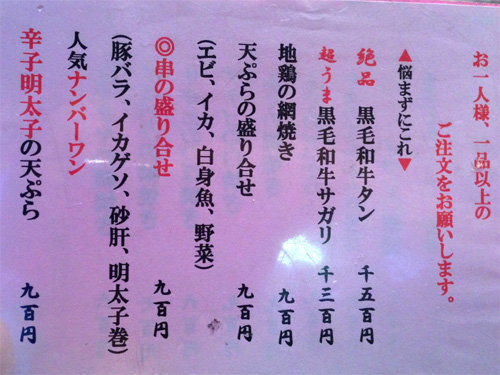 お一人様、一品以上の
ご注文をお願いします。
▲悩まずにこれ▼
絶品 黒毛和牛タン 千五百円
超うま黒毛和牛サガリ 千三百円
地鶏の網焼き 九百円
天ぷらの盛り合せ 九百円
(エビ、イカ、白身魚、野菜)
◎串の盛り合せ 九百円
(豚バラ、イカゲソ、砂肝、明太子巻)
人気ナンバーワン
辛子明太子の天ぷら 九百円